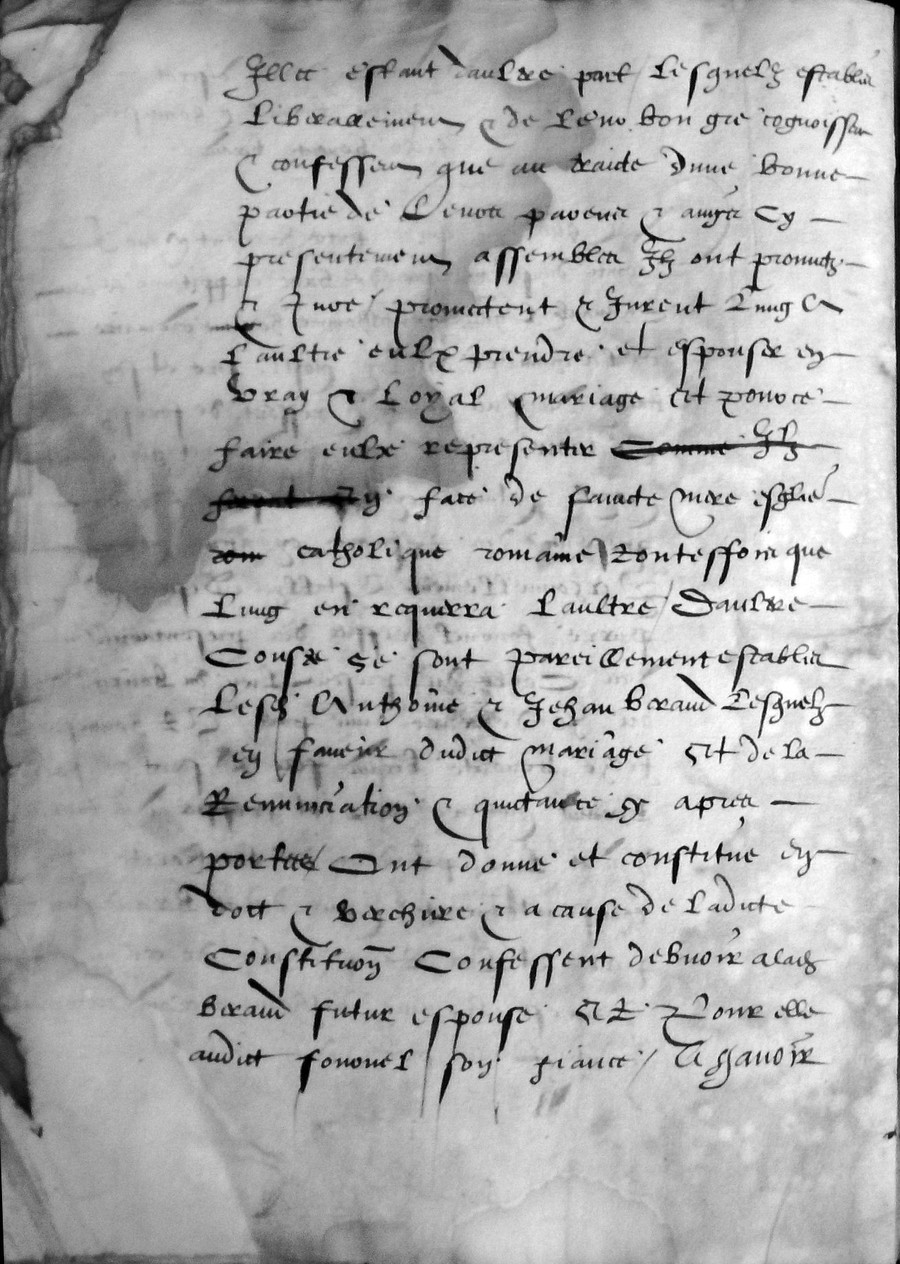 Illec estant daultre part Lesquelz establis
Liberallement & de leur bon gre cognoissen
& confessen que au traicte dune bonne
partie de Leurs parens & amys Cy
presentement assemblez Ilz ont promictz
& Jure promectent & Jurent Lung A
Laultre eulx prendre et espouser en
vray & Loyal mariage Et pource
faire eulx representer Comme Ilz
feront En face de saincte mere esglie
rom catholique romaine touteffois que
Lung en requerra Laultre / Daultre
Couste se sont pareillement establis
Lesd Anthoine & Jehan beraud Lesquelz
en faveur dudict mariage Et de la
Renunciation & quictance cy apres
portees / Ont donne et constitue en
doct & verchiere & a cause de Ladicte
Constitution Confessent debvoir a lad
beraud futur espouse Et Pour elle
audict fononel son fiance / Ascavoir